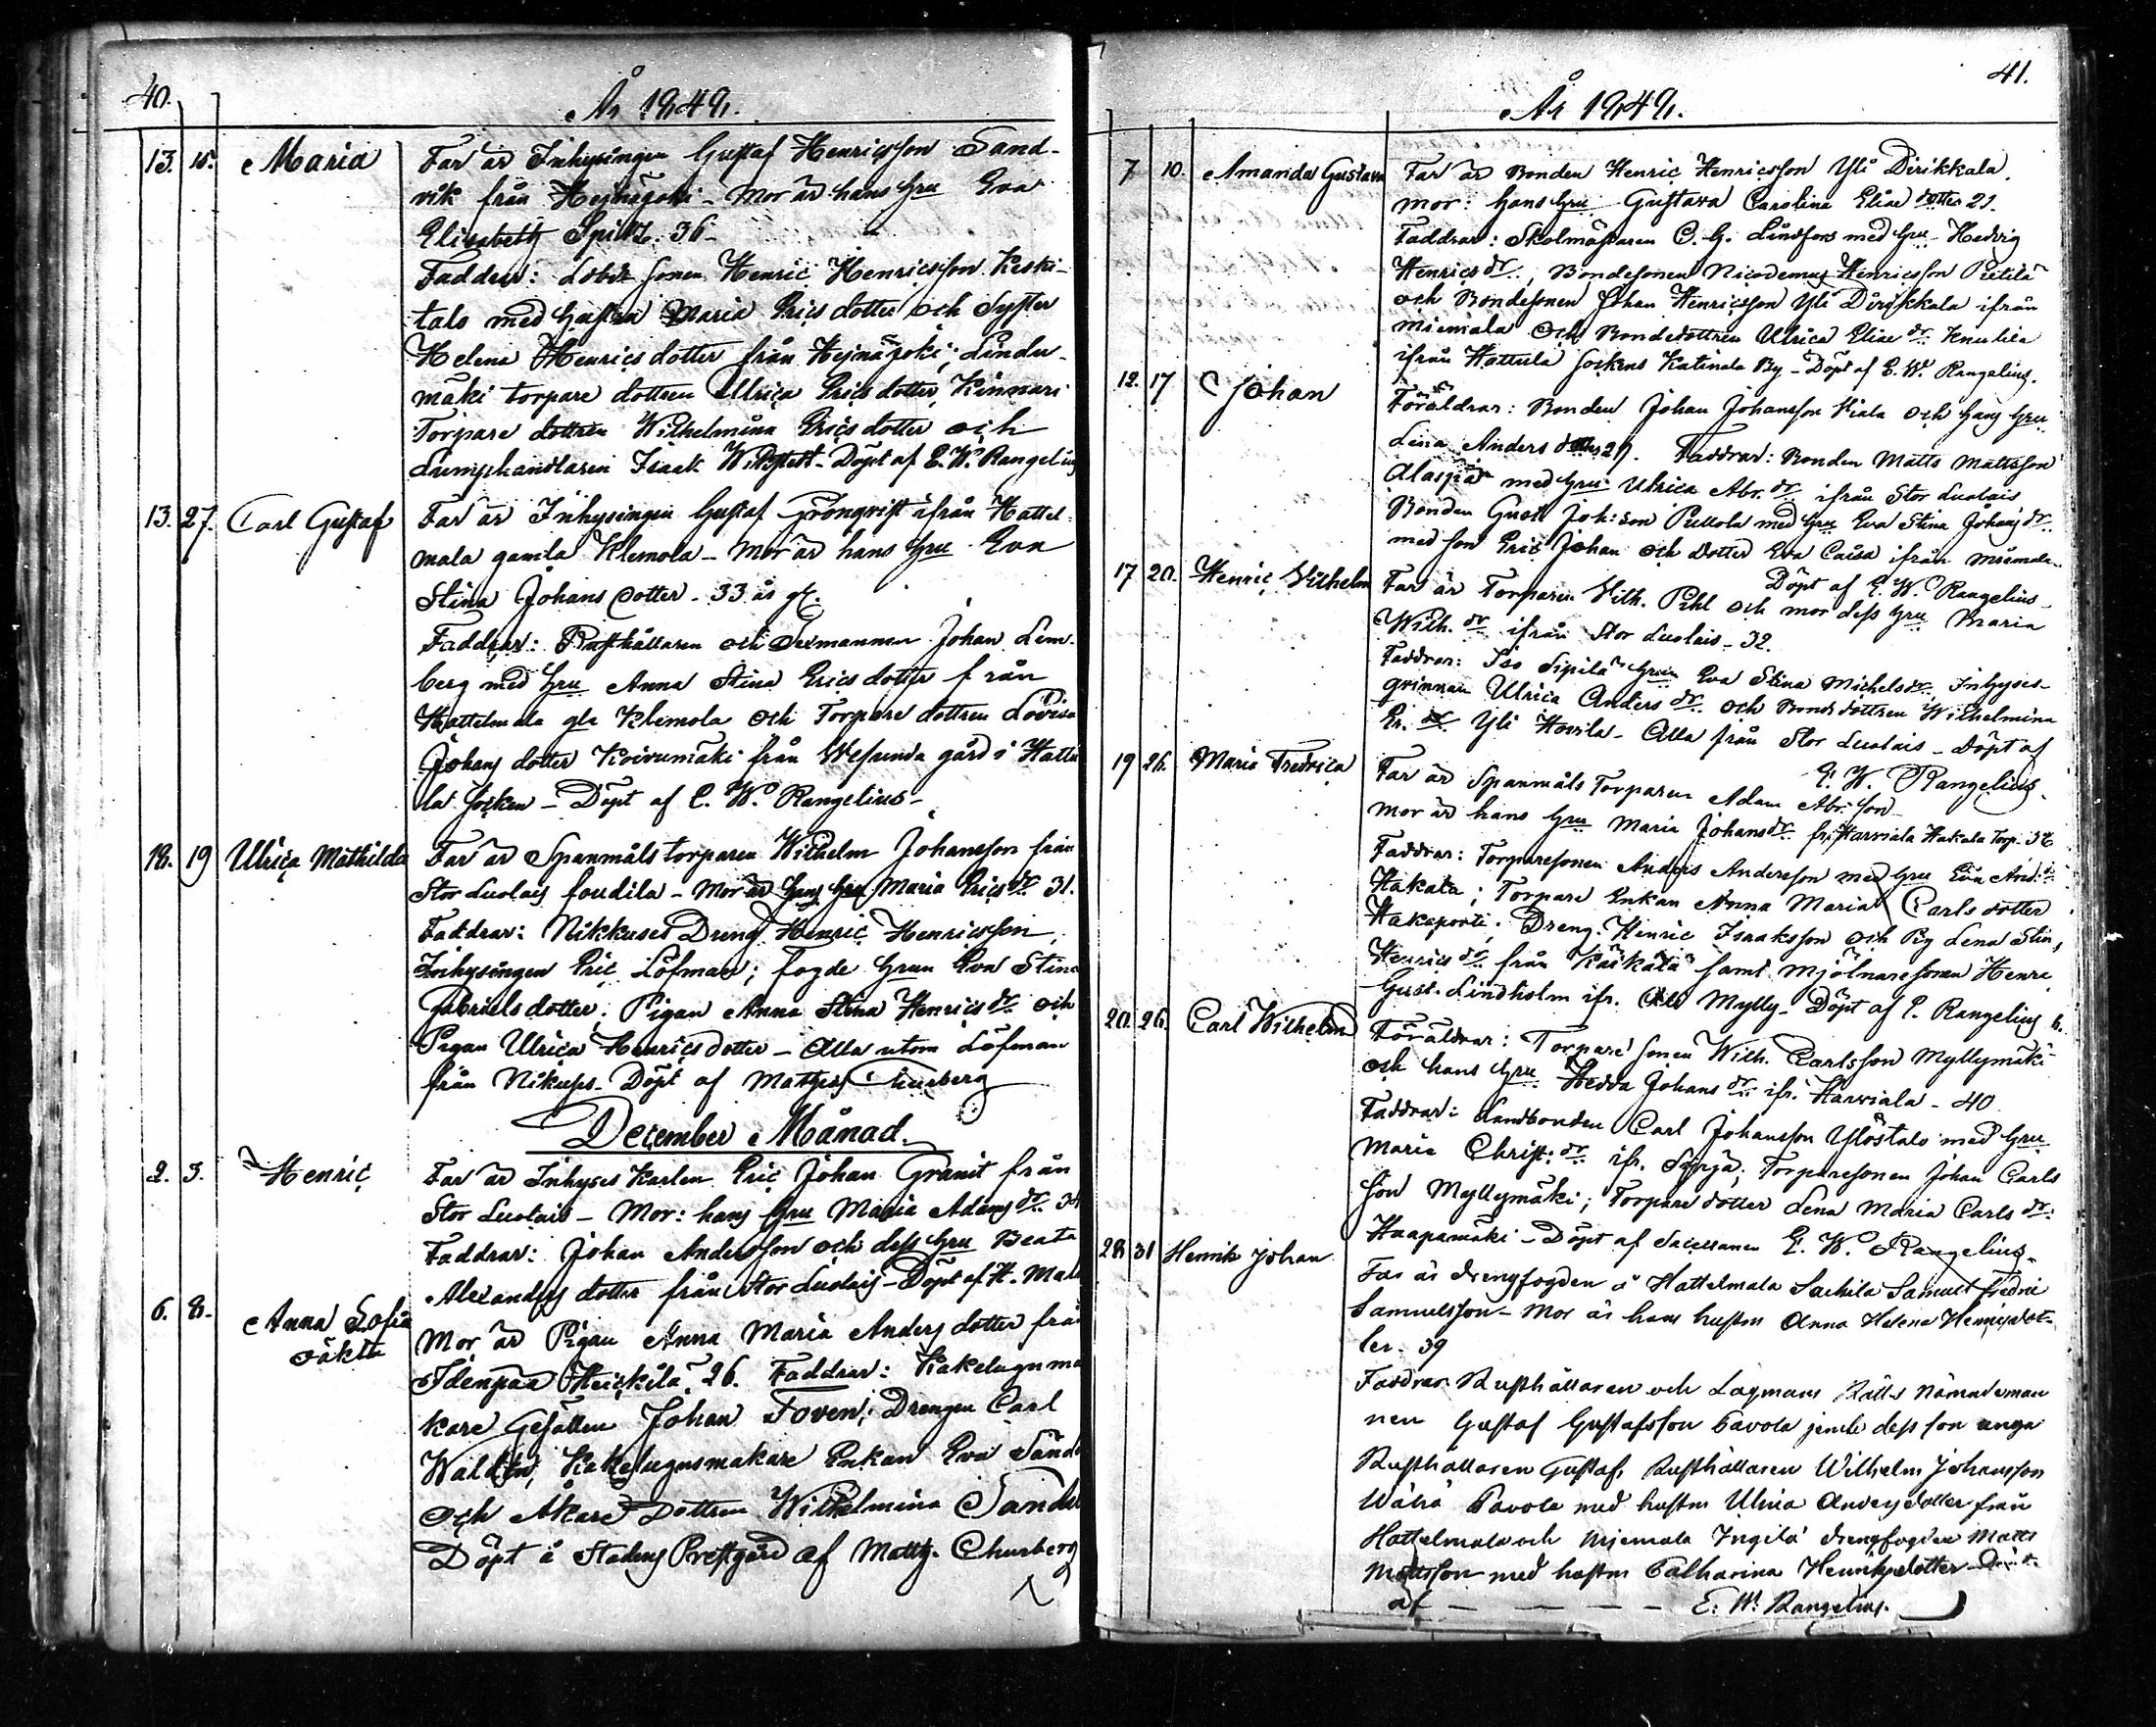 40.
År 1849.
13. 15. Maria Far är Inhysingen Gustaf Henricsson Sand-
vik från Hejnäjoki - Mor är hans hru Eva
Elisabeth Spitz. 36 -
Faddrar: sonen Henric Henricsson Keski-
talo med hustru Maria Ericsdotter och Syster
Helena Henricsdotter från Hejnäjoki; Lindu-
mäki torpare dottren Ulrica Ericsdotter, Kinnari
Torpare dottren Wilhelmina Ericsdotter och
Lumphandlaren Isaak - Döpt af E. W. Rangelius
13. 27. Carl Gustaf Far är Inhysingen Gustaf Grönqvist ifrån Hattel-
mala gamla Klemola - Mor är hans hru Eva
Stina Johans dotter - 33 år gl.
Faddrar: Rusthållaren och Sexmannen Johan Lem-
berg med hru Anna Stina Erics dotter från
Hattelmala gla Klemola och Torpare dottren Lovisa
Johans dotter Koivumäki från Wesunda gård i Hattu
la Socken - Döpt af E. W. Rangelius -
18. 19 Ulrica Mathilda Far är Spanmåls torparen Wilhelm Johansson från
Stor Luolais - Mor är hans hru Maria Erics dr. 31.
Faddrar: Nikkuses Dreng Henric Henricsson,
Inhysingen Eric Löfman; fogde hrun Eva Stina
Gabriels dotter; Pigan Anna Stina Henrics dr. och
Pigan Ulrica Henrics dotter - Alla utom Löfman
från Nikuss - Döpt af Mathias Churberg
December Månad.
2. 3. Henric Far är Inhyses Karlen Eric Johan Granit från
Stor Luolais - Mor: hans hru Maria Adams dr. 34
Faddrar: Johan Andersson och dess hru Beata
Alexanders dotter från Stor Luolais - Döpt af H.
6. 8. Anna Sofia Mor är Pigan Anna Maria Anders dotter från
oäkta Idenpää Heickilä 26. Faddrar: Kakelugnma
kare Gesällen Johan Toven; Drengen Carl
Walden, Kakelugnsmakare Enkan Eva
och Åkare Dottren Wilhelmina
Döpt å Stadens Prestgård af Matths. Churberg
41.
År 1849.
7 10. Amanda Gustava Far är Bonden Henric Henricsson Yli Dirikkala.
mor: hans hru Gustava Carolina Eliae dotter 21.
Faddrar: Skolmästaren C. G. Lindfors med hru Hedvig
Henrics dr., Bondesonen Nicodemus Henricsson Pietilä
och Bondesonen Johan Henricsson Yli Dirikkala ifrån
Miemala och Bondedottren Ulrica Eliae dr. Knuutila
ifrån Hattula Sockens Katinala By - Döpt af E. W. Rangelius.
12. 17 Johan Föräldrar: Bonden Johan Johansson och hans hru
Lena Anders dotter 29. Faddrar: Bonden Matts Mattsson
Alaspää med hru Ulrica Abr. dr. ifrån Stor Luolais
Bonden Gust. Joh:son Pullola med hru Eva Stina Johans dr.
med son Eric Johan och dotter Eva Caisa ifrån Miemala.
Döpt af E. W. Rangelius -
17 20. Henric Vilhelm Far är Torparen Vilh. Pihl och mor dess hru Maria
Wilh. dr ifrån Stor Luolais - 32.
Faddrar: Iso Sipilä hrun Eva Stina Michels dr., Inhyses-
qvinnan Ulrica Anders dr. och Bonde dottren Wilhelmina
Er. dr. Yli Hovila - Alla från Stor Luolais - Döpt af
E. W. Rangelius.
19 26. Maria Fredrica Far är Spanmåls Torparen Adam Abr:son
mor är hans hru Maria Johans dr. fr. Harviala Hakala Torp. 36
Faddrar: Torparesonen Anders Andersson med hru Eva And:
Hakala; Torpare Enkan Anna Maria Carls dotter
Hakaporti; Dreng. Henric Isaksson och Pig Lena Stin,
Henrics dr. från Käikälä samt Mjölnaresonen Henr.
Gust. Lindholm ifr. Mylly - Döpt af E. Rangelius
20. 26. Carl Wilhelm Föräldrar: Torpare sonen Wilh. Carlsson Myllymäki
och hans hru Hedda Johans dr. ifr. Harviala - 40
Faddrar: Landbonden Carl Johansson Ylöstalo med hru
Maria Christ: dr. ifr. Särjä; Torparesonen Johan Carls
son Myllymäki; Torpare dotter Lena Maria Carls dr.
Haapamäki - Döpt af Sacellanen E. W. Rangelius -
28 31 Henrik Johan Far är drengfogden å Hattelmala Samuel Fredric
Samuelsson - Mor är hans hustru Anna Helena Henriksdot-
ter. 39
Faddrar Rusthållaren och Lagmans Rätts Nämndeman
nen Gustaf Gustafsson Pavola jemte dess son unga
Rusthållaren Gustaf, Rusthållaren Wilhelm Johansson
Wähä Pavola med hustru Ulrica Andersdotter från
Hattelmala och Miemala Ingilä drengfogden Matts
Mattsson med hustru Catharina Henriksdotter Döpt
af - - - - - E. W. Rangelius.